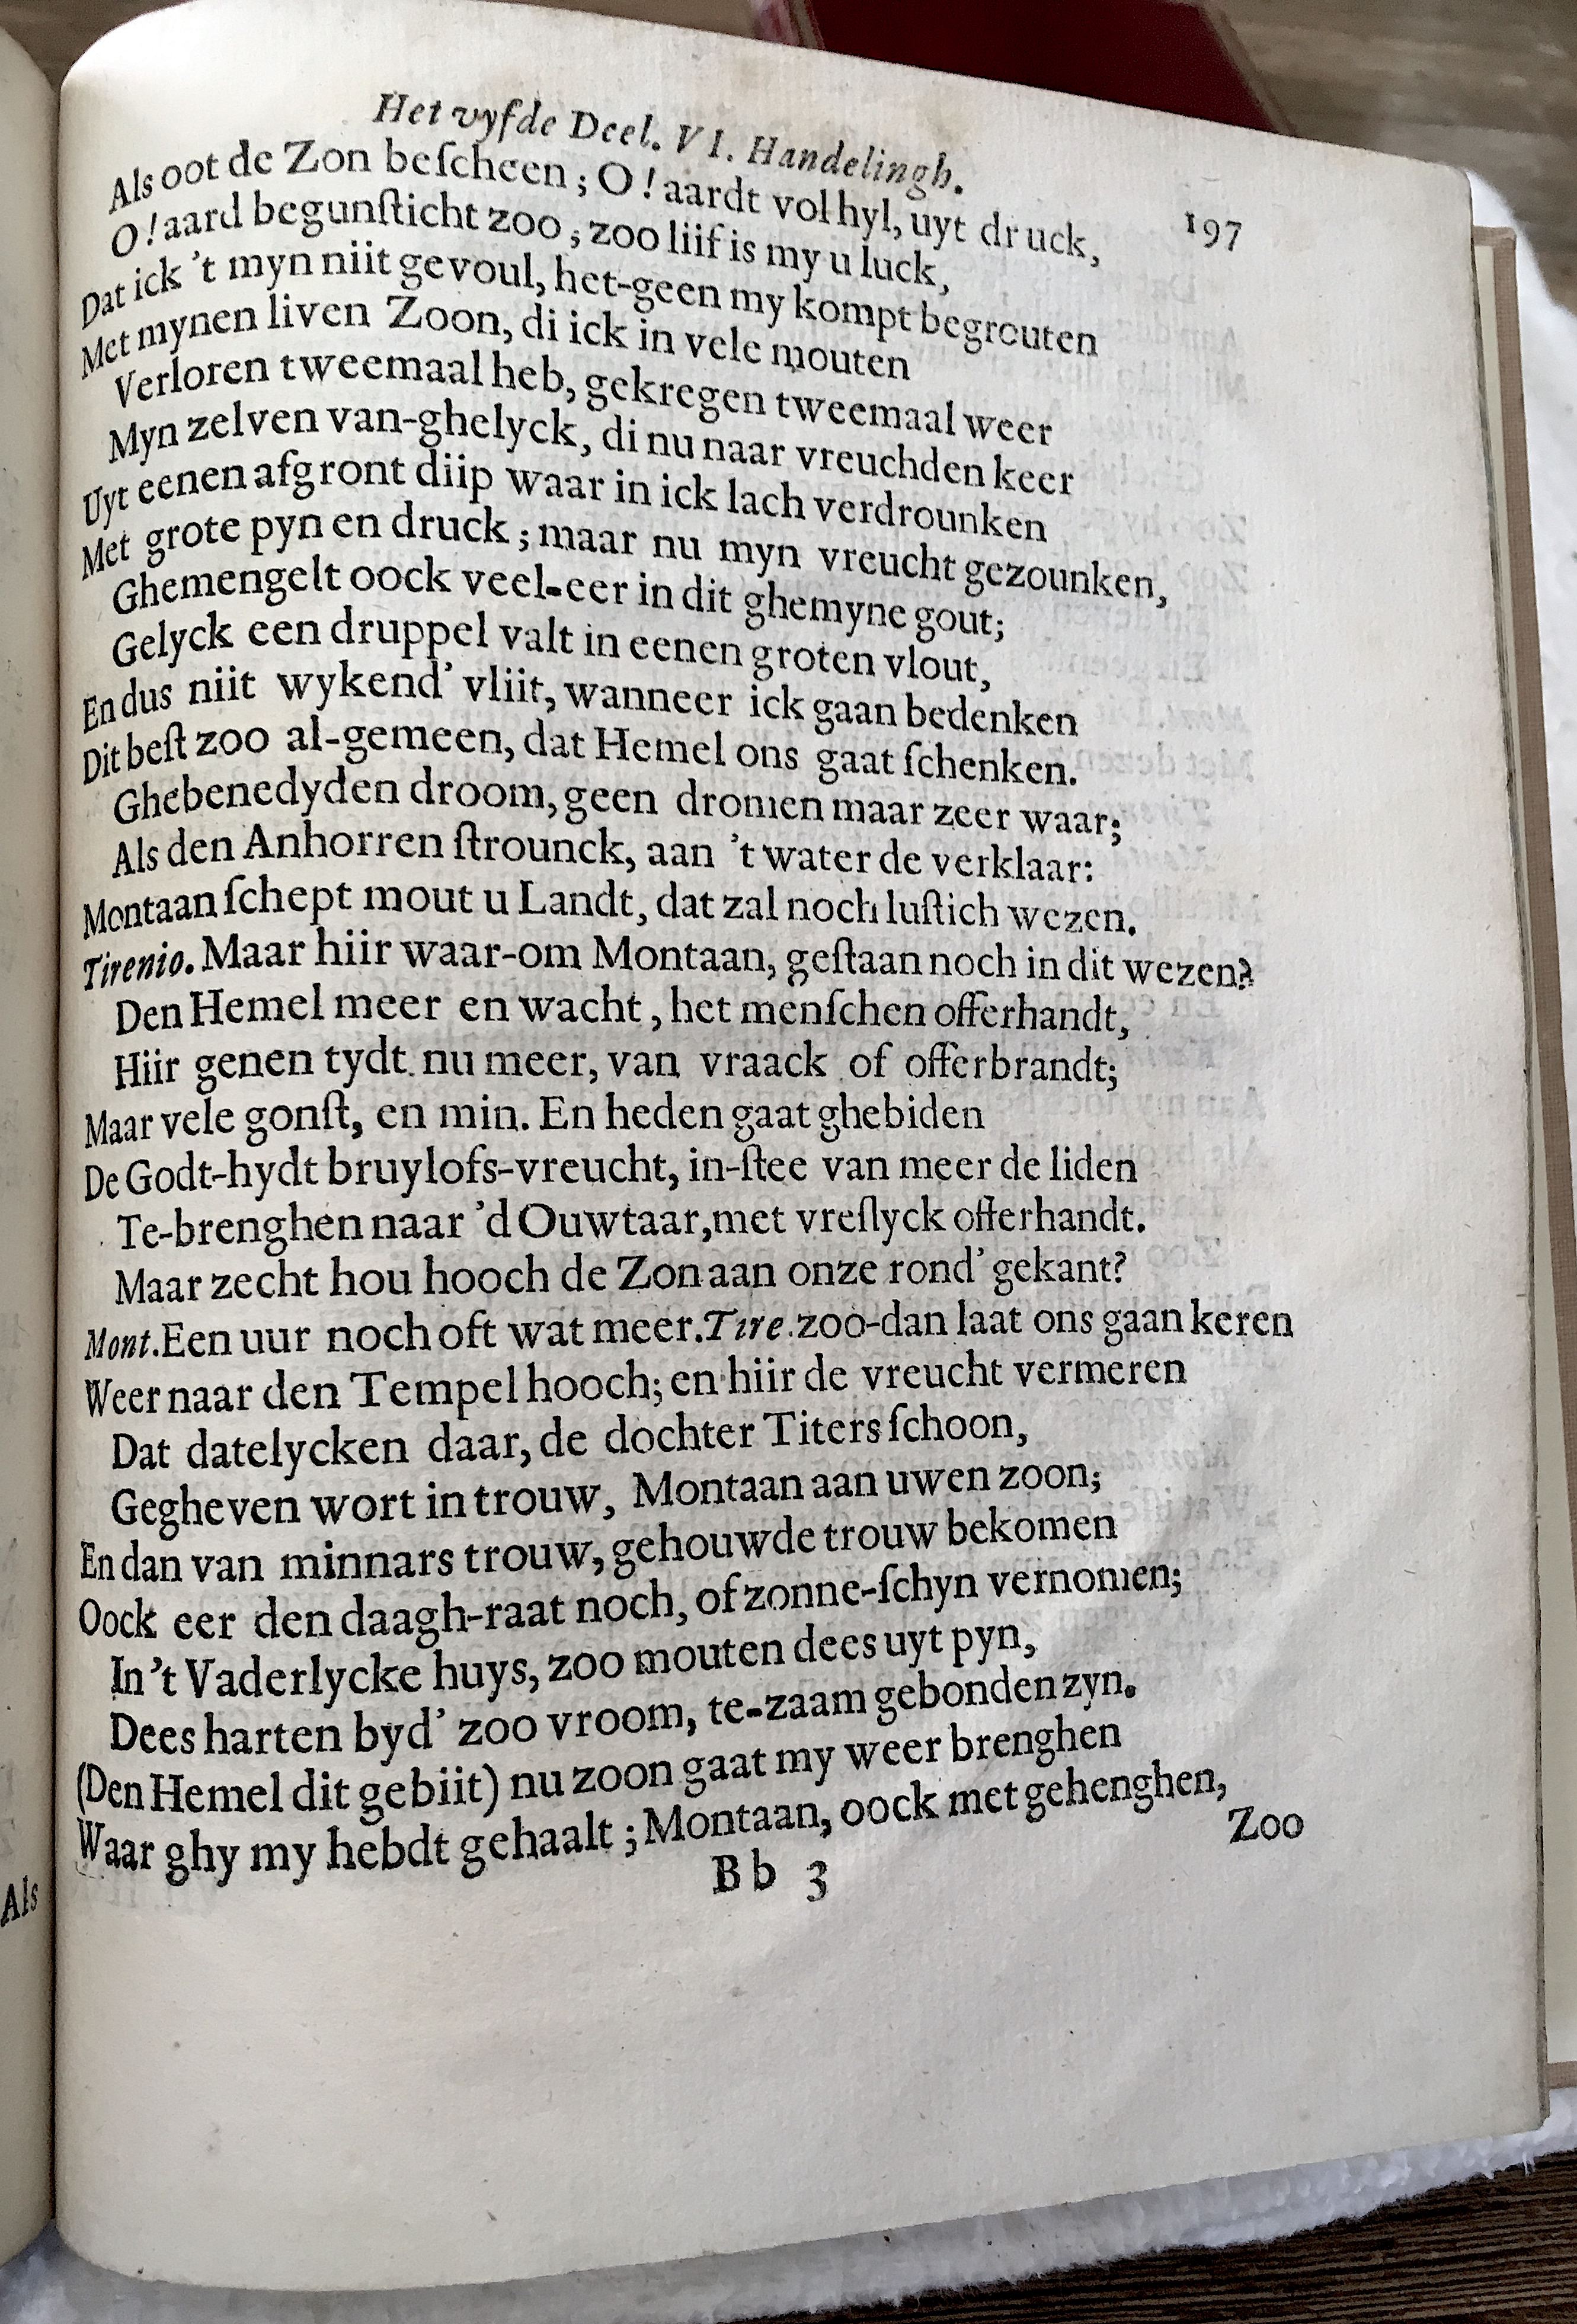 Het vyfde Deel. VI. Handelingh. 197
Als oot de Zon beſcheen; O! aardt vol hyl, uyt druck,
O! aard begunſticht zoo, zoo liif is my u luck,
Dat ick 't myn niit gevoul, het-geen my kompt begrouten
Met mynen liven Zoon, di ick in vele mouten
Verloren tweemaal heb, gekregen tweemaal weer
Myn zelven van-ghelyck, di nu naar vreuchden keer
Uyt eenen afgront diip waar in ick lach verdrounken
Met grote pyn en druck; maar nu myn vreucht gezounken,
Ghemengelt oock veel-eer in dit ghemyne gout;
Gelyck een druppel valt in eenen groten vlout,
En dus niit wykend' vliit, wanneer ick gaan bedenken
Dit beſt zoo al-gemeen, dat Hemel ons gaat ſchenken.
Ghebenedyden droom, geen dromen maar zeer waar;
Als den Anhorren ſtrounck, aan 't water de verklaar:
Montaan ſchept mout u Landt, dat zal noch luſtich wezen.
Tirenio. Maar hiir waar-om Montaan, geſtaan noch in dit wezen?
Den Hemel meer en wacht, het menſchen offerhandt,
Hiir genen tydt nu meer, van vraack of offerbrandt;
Maar vele gonſt, en min. En heden gaat ghebiden
De Godt-hydt bruylofs-vreucht, in-ſtee van meer de liden
Te-brenghen naar 'd Ouwtaar, met vreſlyck offerhandt.
Maar zecht hou hooch de Zon aan onze rond' gekant?
Mont. Een uur noch oft wat meer. Tire. zoo-dan laat ons gaan keren
Weer naar den Tempel hooch; en hiir de vreucht vermeren
Dat datelycken daar, de dochter Titers ſchoon,
Gegheven wort in trouw, Montaan aan uwen zoon;
En dan van minnars trouw, gehouwde trouw bekomen
Oock eer den daagh-raat noch, of zonne-ſchyn vernomen;
In 't Vaderlycke huys, zoo mouten dees uyt pyn,
Dees harten byd' zoo vroom, te-zaam gebonden zyn.
(Den Hemel dit gebiit) nu zoon gaat my weer brenghen
Waar ghy my hebdt gehaalt; Montaan, oock met gehenghen,
Zoo
Bb 3
Als